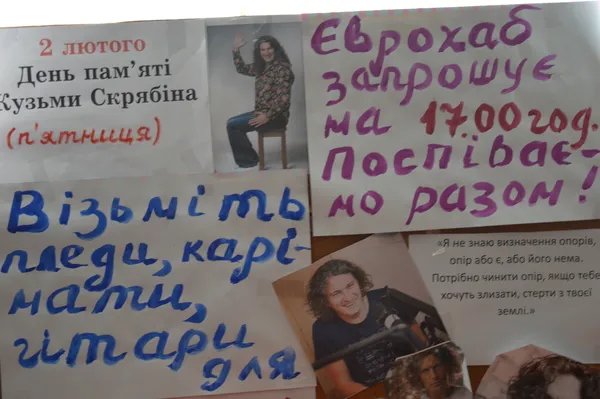 2 лютого
День пам'яті
Кузьми Скрябіна
(п'ятниця)
Єврохаб
запрошує
на 17.00 год.
Поспіває-
мо разом!
Візьміть
пледи, карі-
мати,
гітари
для
«Я не знаю визначення опорів,
опір або є, або його нема.
Потрібно чинити опір, якщо тебе
хочуть злизати, стерти з твоєї
землі.»